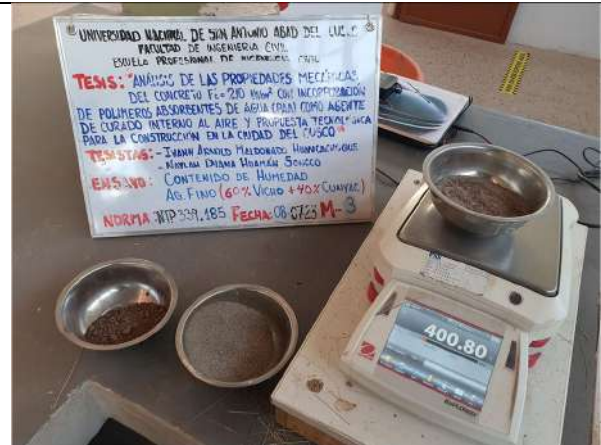 UNIVERSIDAD NACIONAL DE SAN ANTONIO ABAD DEL
FACULTAD DE INGENIERIA CIVIL
ESCUELA PROFESIONAL DE INGENIERIA CIVIL
TESIS: "ANÁLISIS DE LAS PROPIEDADES MECÁNICAS
DEL CONCRETO F'c=210 CON INCORPORACIÓN
DE POLIMEROS ABSORBENTES DE AGUA (PAA) COMO AGENTE
DE CURADO INTERNO AL AIRE Y PROPUESTA
PARA LA CONSTRUCCION EN LA CIUDAD DEL CUSCO"
TESISTAS: - IVANN ARNOLD MALDONADO
- DAYANA HUAMÁN
ENSAYO: CONTENIDO DE HUMEDAD
AG. FINO (60% VICHO + 40% CUNYAC)
NORMA: NTP 339.185 FECHA: 08-07-23 M-3
400.80
OHAUS